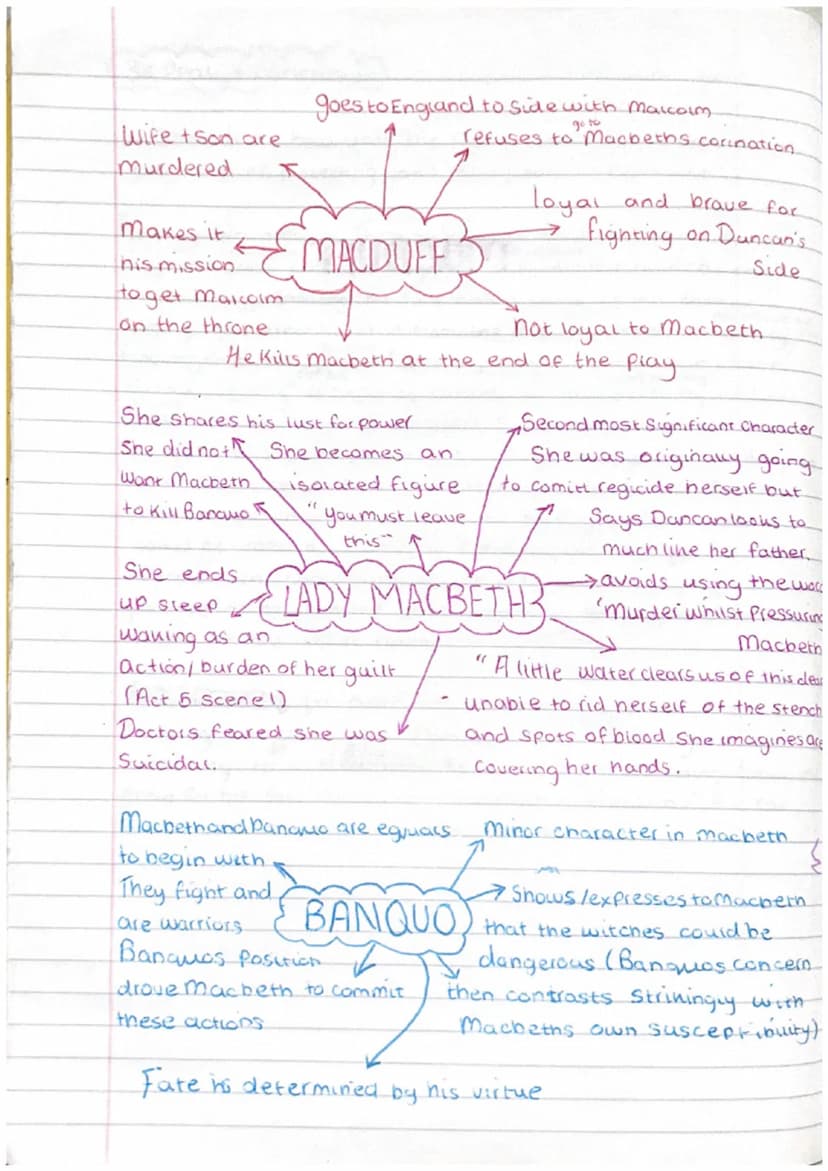 goes to England to side with Malcolm
refuses to go to Macbeths corination
Wife + son are
murdered
loyal and brave for
fighting on Duncan's
side
Makes it
his mission
to get Malcolm
on the throne
MACDUFF
not loyal to Macbeth
He kills Macbeth at the end of the play
She shares his lust for power
She did not
want Macbeth
to kill Banquo
She becomes an
isolated figure
"you must leave
this"
Second most significant character
She was originally going
to comitt regicide herself but
says Duncan looks to
much like her father.
She ends
up sleep
walking as an
action/burden of her guilt
(Act 5 scene 1)
LADY MACBETH
avoids using the word
'Murder' whilst pressuring
Macbeth
"A little water clears us of this
- unable to rid herself of the stench
and spots of blood she imagines
covering her hands.
Doctors feared she was
suicidal.
Macbeth and Banquo are equals
to begin with
They fight and
are warriors
Minor character in macbeth
BANQUO
Shows/expresses to Macbeth
that the witches could be
dangerous (Banquos concern
then contrasts strikingly with
Macbeths own susceptibility)
Banquos position
drove Macbeth to commit
these actions
Fate is determined by his virtue